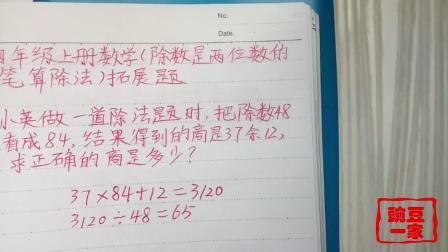 No:
Date.
四年级上册数学(除数是两位数的
笔算除法)拓展题
小英做一道除法题时,把除数48
看成84,结果得到的商是37余12,
求正确的商是多少?
37×84+12=3120
3120÷48=65
豌豆
一家